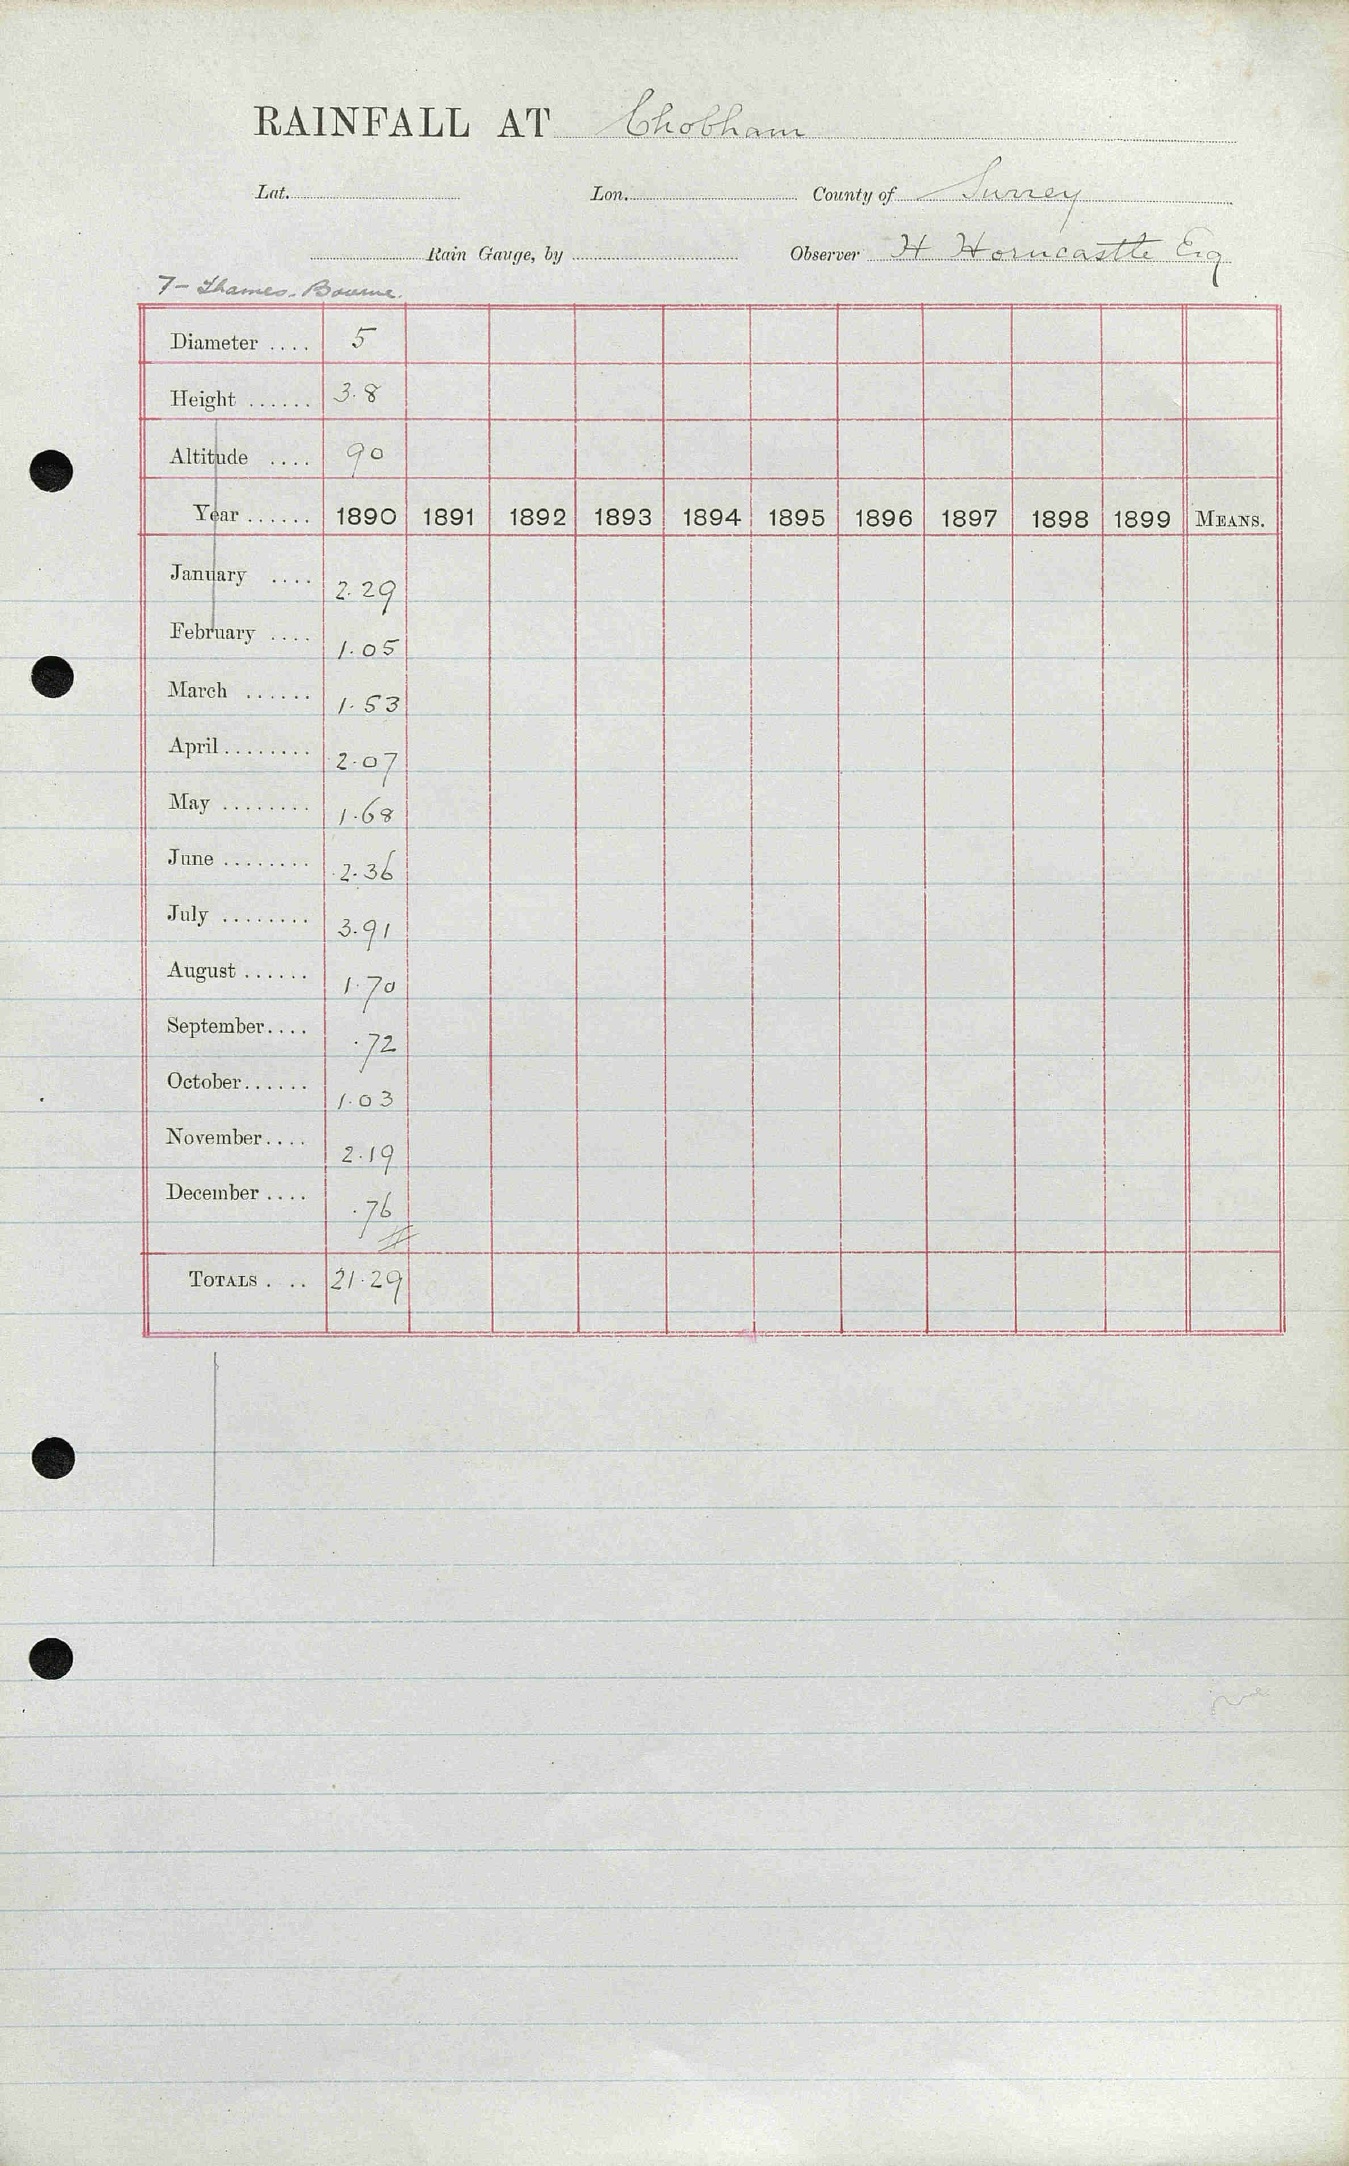 RAINFALL AT Chobham
Lat. Lon. County of Surrey
Rain Gauge, by Observer H Horncastle Esq
7- Thames. Bourne.
Diameter .... 5
Height ...... 3.8
Altitude .... 90
Year ...... 1890 1891 1892 1893 1894 1895 1896 1897 1898 1899 MEANS.
January .... 2.29
February .... 1.05
March ...... 1.53
April ........ 2.07
May ........ 1.68
June ........ 2.36
July ........ 3.91
August ...... 1.70
September.... .72
October...... 1.03
November.... 2.19
December .... .76
TOTALS . .. 21.29